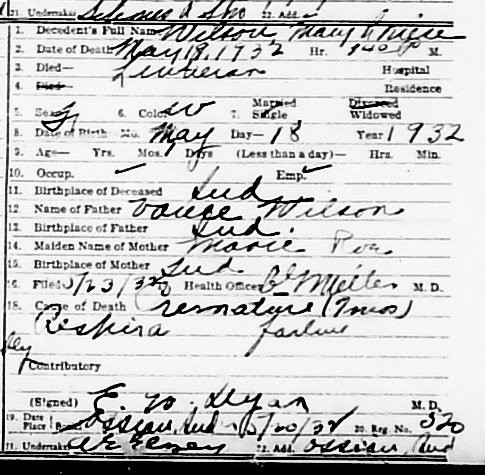 21. Undertaker & Son 22. Add.
1. Decedent's Full Name Wilson Mary
2. Date of Death May 18, 1932 Hr. 340 P M.
3. Died— Lutheran Hospital
4. Died— Residence
5. Sex F 6. Color W 7. Married Single Divorced Widowed
8. Date of Birth Mo. May Day— 18 Year 1932
9. Age— Yrs. Mos. Days (Less than a day)— Hrs. Min.
10. Occup. Emp.
11. Birthplace of Deceased Ind
12. Name of Father Vance Wilson
13. Birthplace of Father Ind.
14. Maiden Name of Mother Marie
15. Birthplace of Mother Ind
16. Filed 5/23/32 17. Health Officer Miller M. D.
18. Cause of Death Premature (7mos)
Respira failure
Contributory
(Signed) E. W. Dyar M. D.
19. Date Place B Ossian, Ind 5/20/32 20. Reg. No. 520
21. Undertaker 22. Add. Ossian, Ind